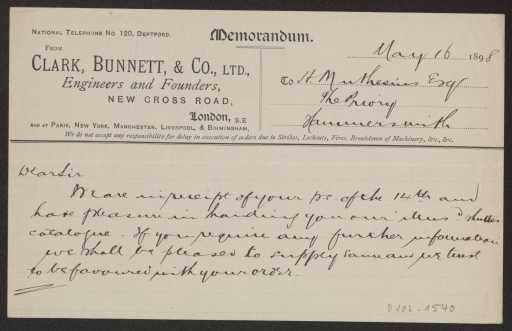 National Telephone No 120, Deptford.
Memorandum.
From
Clark, Bunnett, & Co., Ltd.,
Engineers and Founders,
New Cross Road,
London, S.E
and at Paris, New York, Manchester, Liverpool, & Birmingham.
May 16 1898
To H. Muthesius Esqr
The Priory
Hammersmith
We do not accept any responsibility for delay in execution of orders due to Strikes, Lockouts, Fires, Breakdown of Machinery, &c., &c.
Dear Sir
We are in receipt of your p.c. of the 14th and
have pleasure in handing you our illusd shutter
catalogue. If you require any further information
we shall be pleased to supply same and we trust
to be favoured with your order.
D102-1540